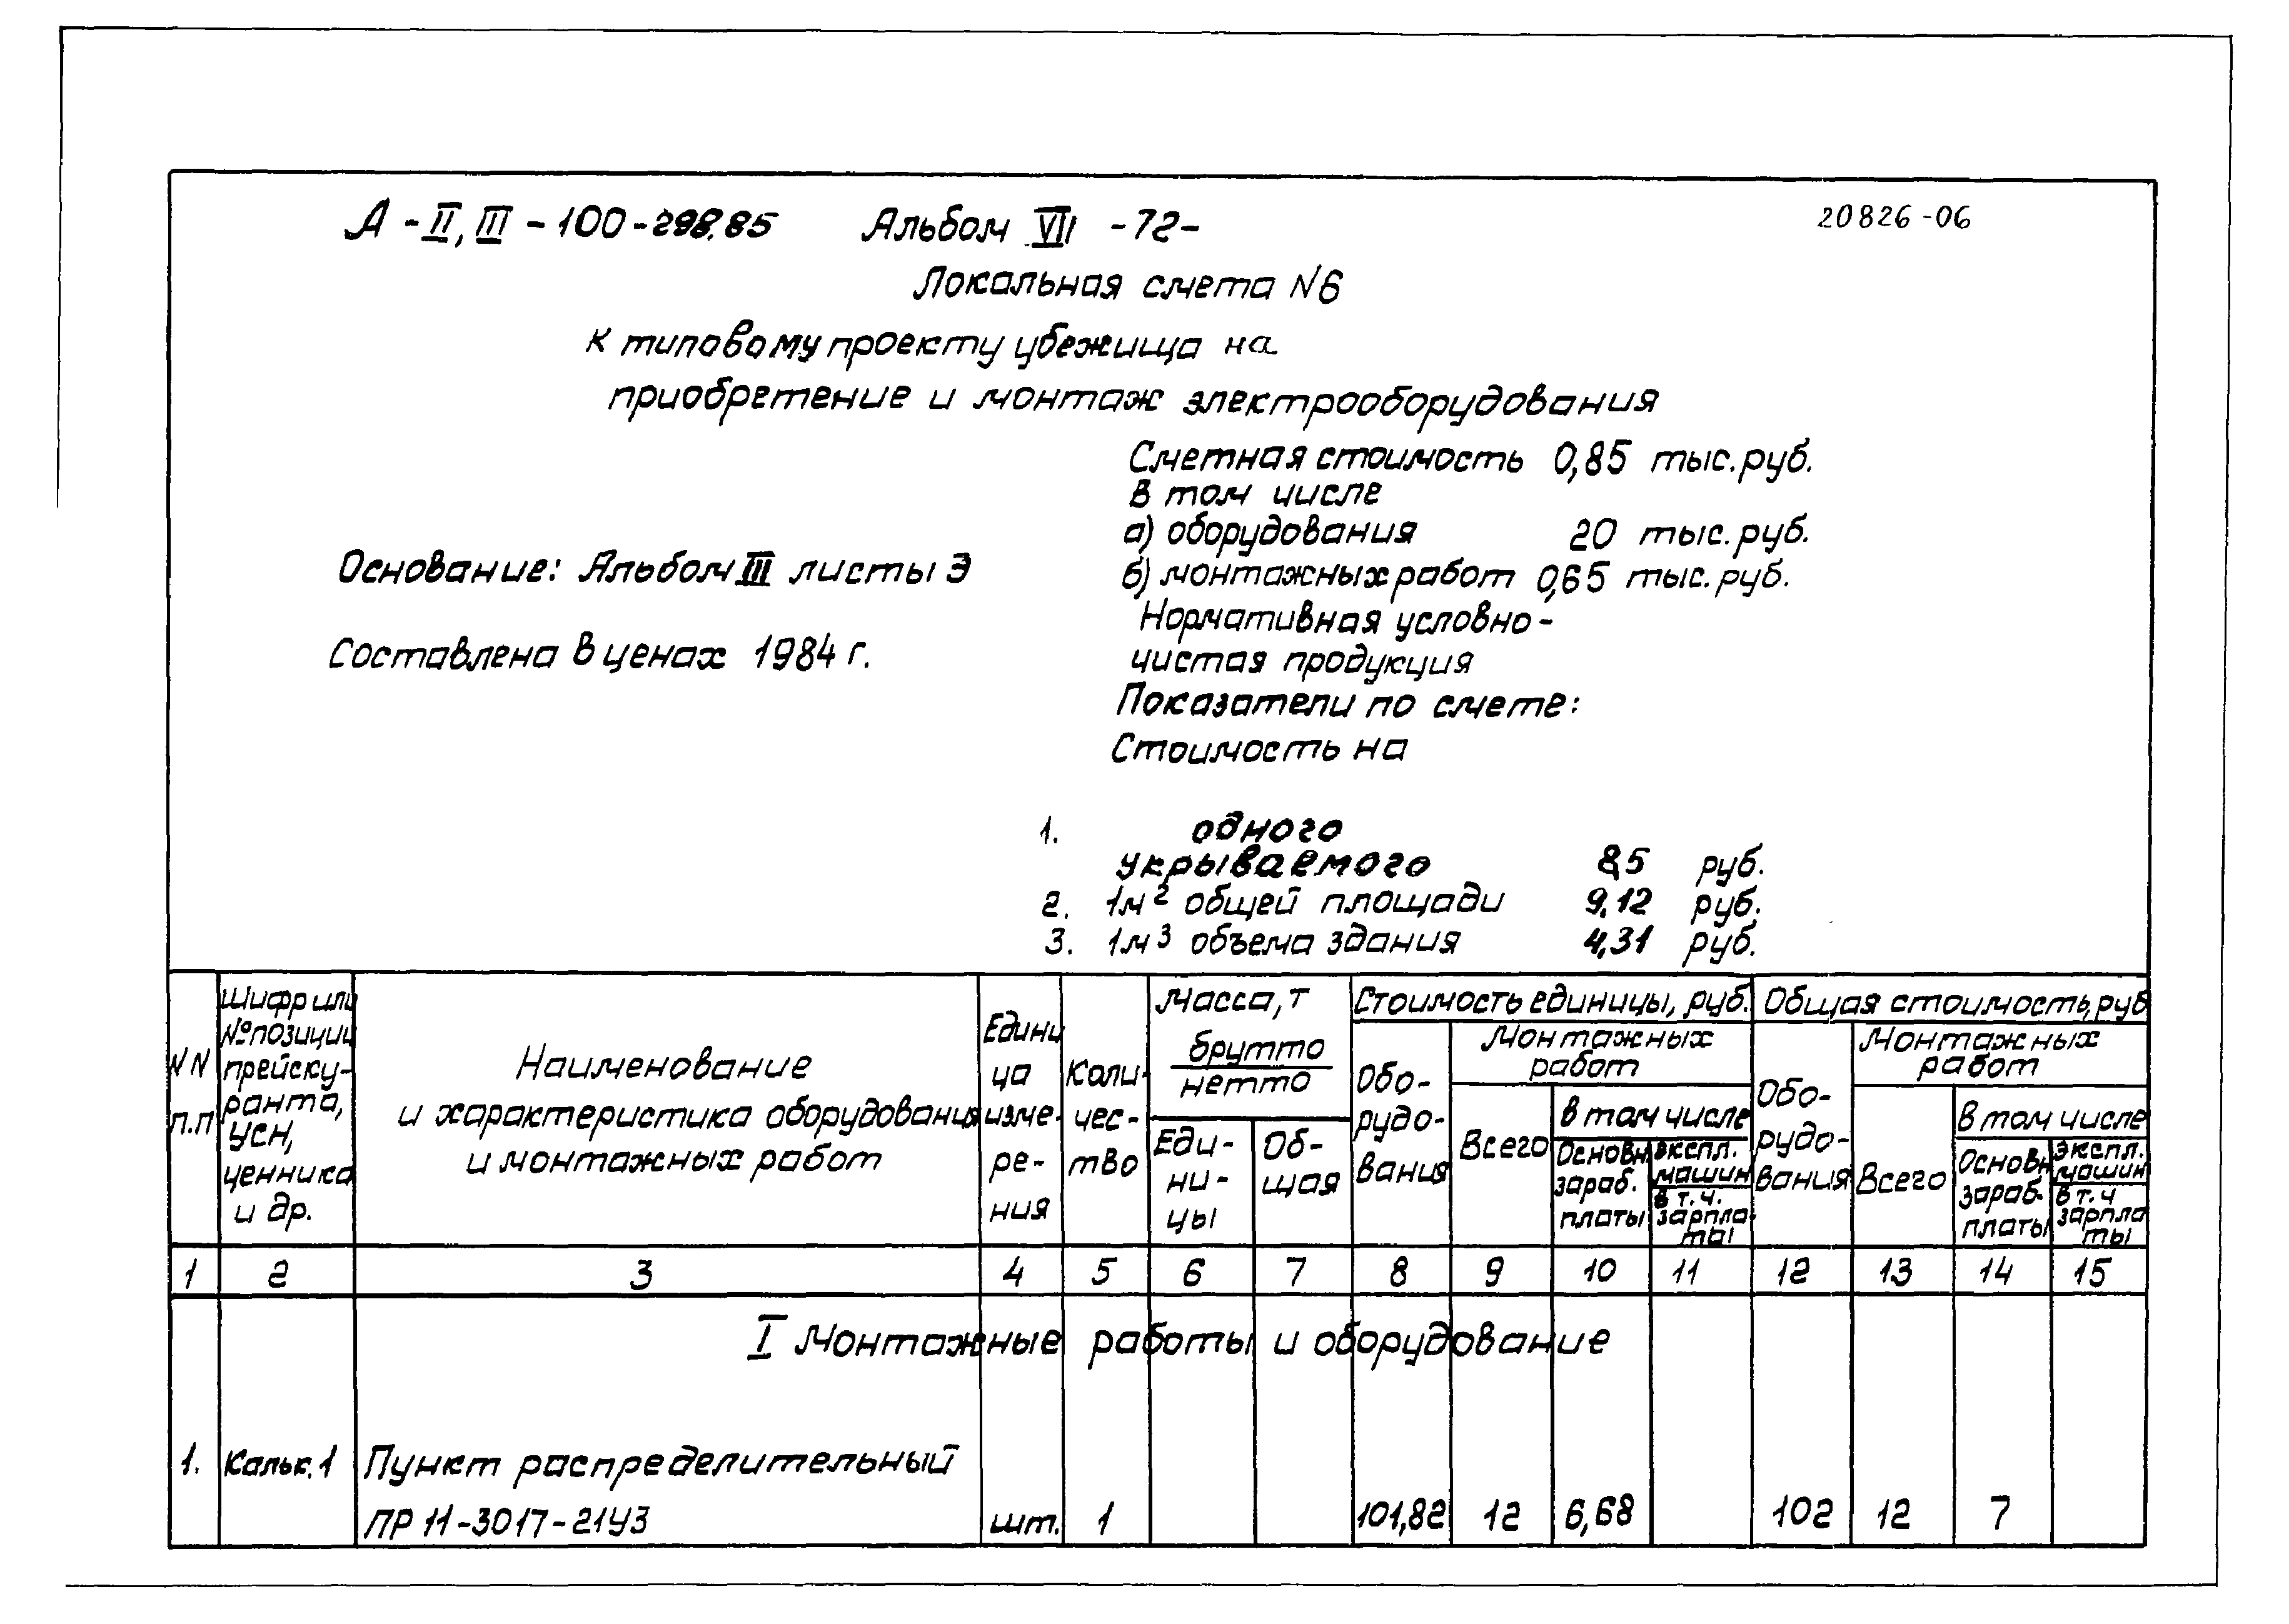 А - II, III - 100 - 298.85 Альбом VII - 72 - 20826-06
Локальная смета N6
к типовому проекту убежища на
приобретение и монтаж электрооборудования
Сметная стоимость 0,85 тыс. руб.
в том числе
а) оборудования 20 тыс. руб.
Основание: Альбом III листы Э
б) монтажных работ 0,65 тыс. руб.
Нормативная условно-
Составлена в ценах 1984 г.
чистая продукция
Показатели по смете:
Стоимость на
1. одного
укрываемого 8,5 руб.
2. 1м2 общей площади 9,12 руб.
3. 1м3 объема здания 4,31 руб.
NN
п.п
Шифр или
№ позиции
прейску-
ранта,
УСН,
ценника
и др.
Наименование
и характеристика оборудования
и монтажных работ
Едини
ца
изме-
ре-
ния
Коли-
чес-
тво
Масса, т
брутто
нетто
Еди-
ни-
цы
Об-
щая
Стоимость единицы, руб.
Обо-
рудо-
вания
Монтажных
работ
Всего
в том числе
Основн
зараб.
платы
экспл.
машин
в т.ч.
зарпла-
ты
Общая стоимость, руб
Обо-
рудо-
вания
Монтажных
работ
Всего
в том числе
Основн
зараб.
платы
экспл.
машин
в т.ч
зарпла
ты
1 2 3 4 5 6 7 8 9 10 11 12 13 14 15
I Монтажные работы и оборудование
1. Кальк. 1 Пункт распределительный
ПР 11-3017-21У3 шт. 1 101,82 12 6,68 102 12 7